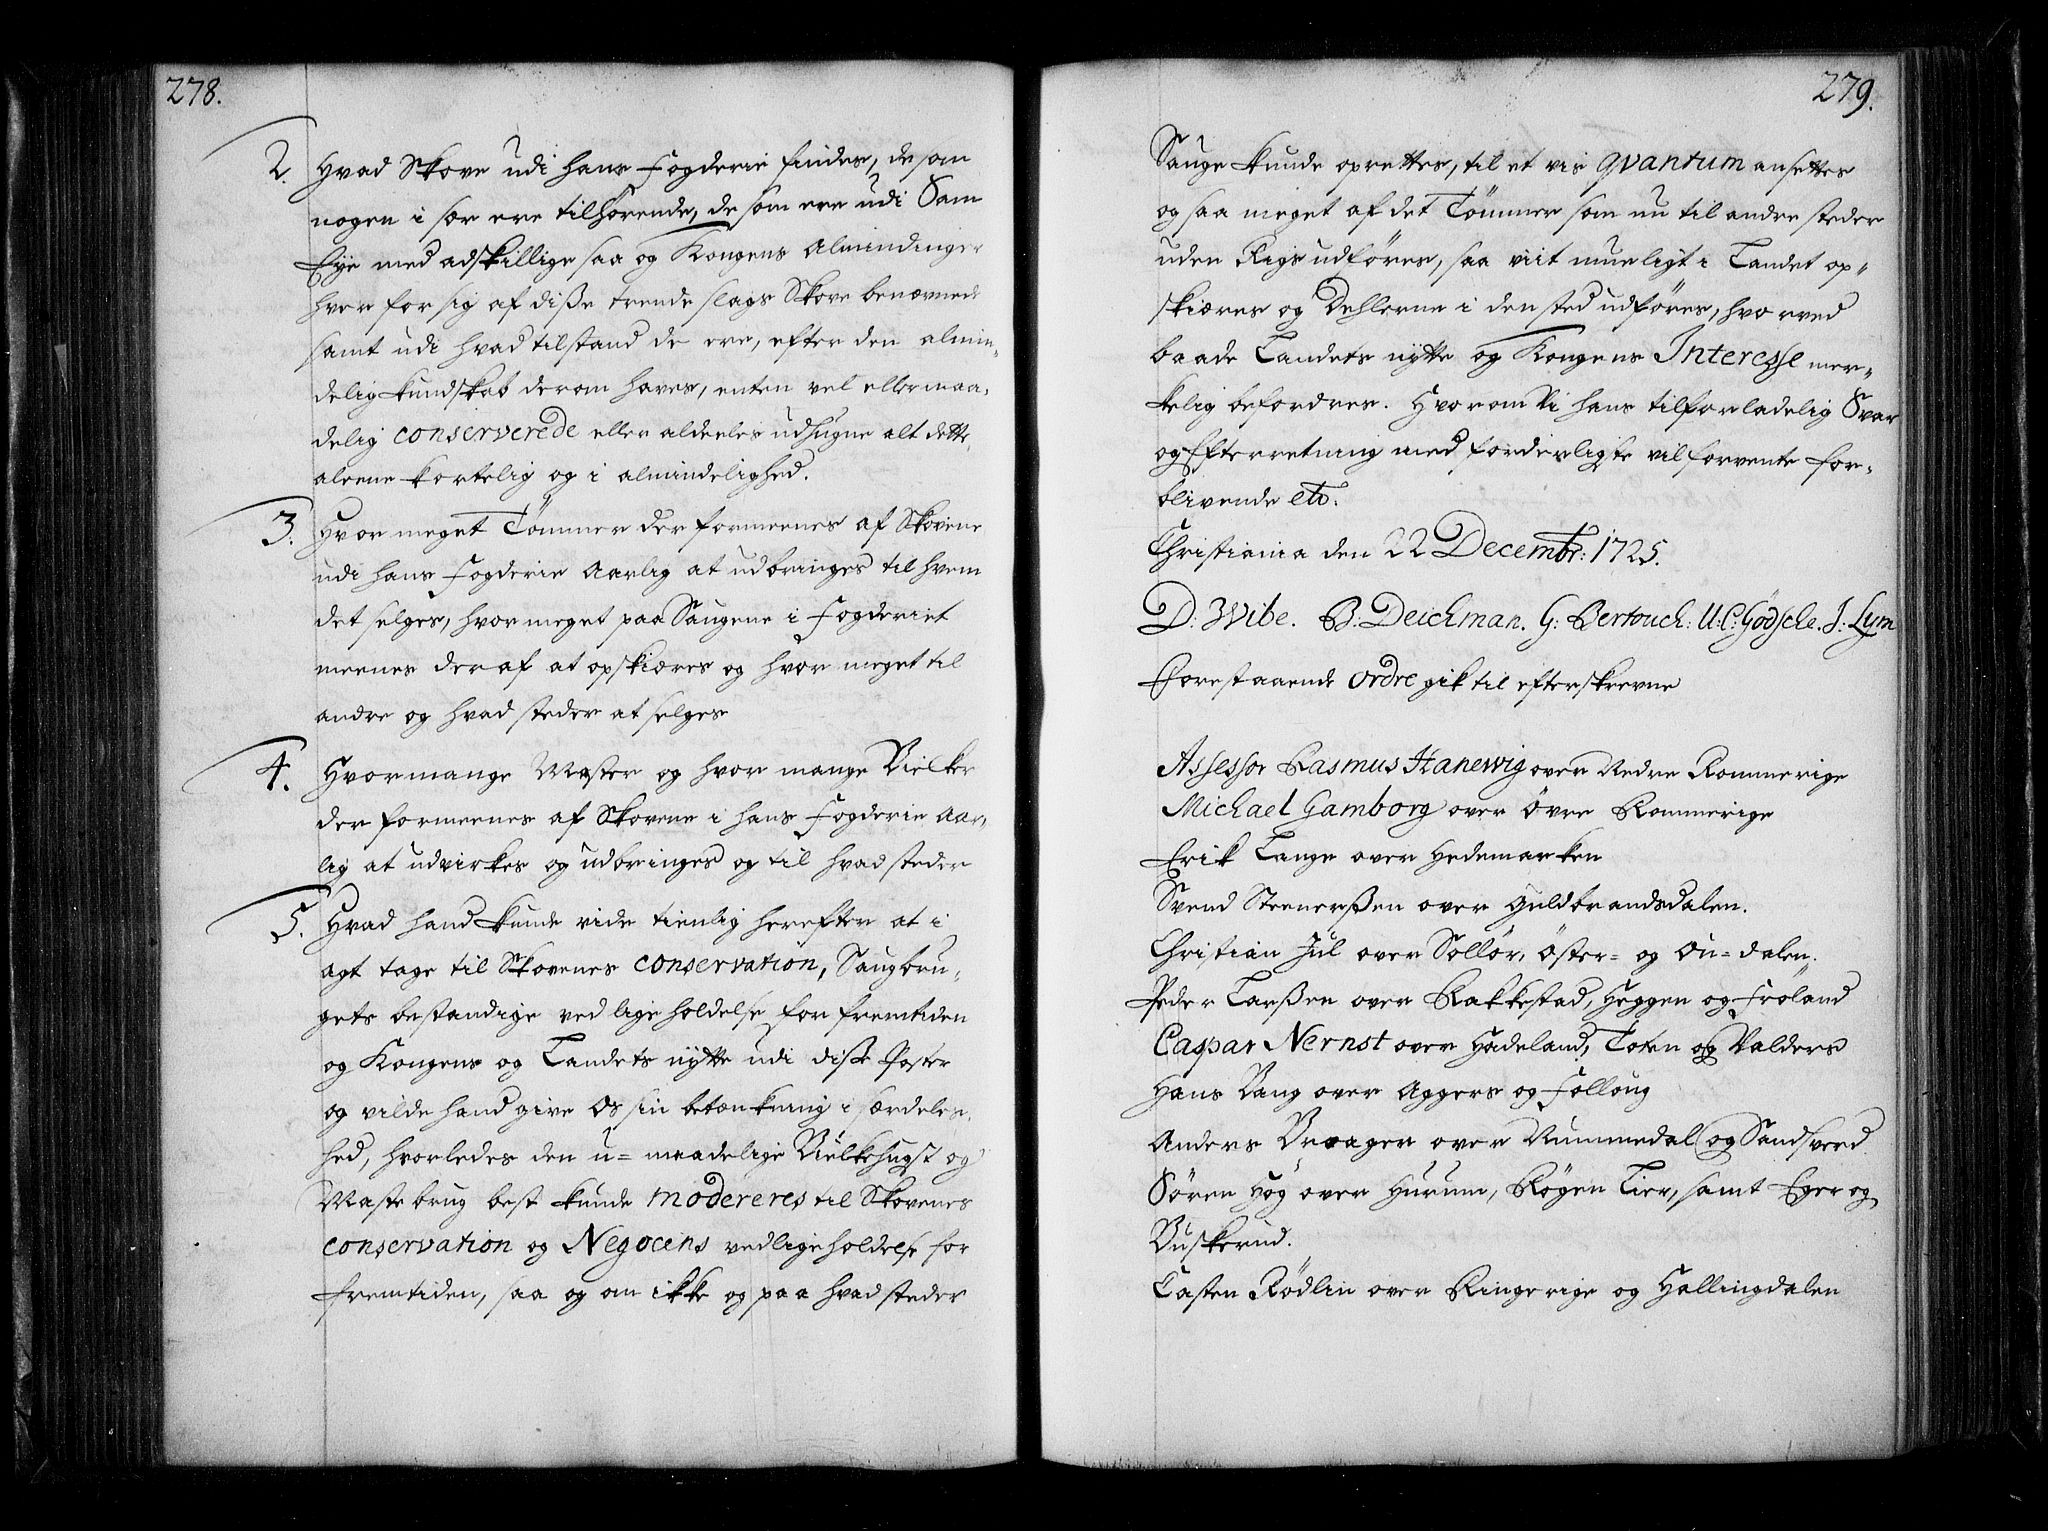 278.
2. Hvad Skove udi hans Fogderie findes, de som
nogen i sær ere tilhørende, de som ere udi Sam
Eye med adskillige saa og Kongens Almindinger
hver for sig af diße trende slags Skove benævnede
samt udi hvad tilstand de ere, efter den almin„
delig kundskab derom haves, enten vel eller maa„
delig conserverede eller aldeeles udhugne alt dette
aleene kortelig og i almindelighed.
3. Hvor meget Tömmer der formeenes af Skovene
udi hans Fogderie Aarlig at udbringes til hvem
det selges, hvor meget paa Saugene i Fogderiet
meenes deraf at opskiæres og hvor meget til
andre og hvad steder at selges
4. Hvormange Master og hvor mange Bielker
der formeenes af Skovene i hans Fogderie Aar„
lig at udvirkes og udbringes og til hvad steder
5. Hvad hand kunde vide tienlig herefter at i
agt tage til Skovenes conservation, Saugbru„
gets bestandige vedligeholdelse for fremtiden
og Kongens og Landets nÿtte udi diße Poster
og vilde hand give Os sin betænkning i særdeles„
hed, hvorledes den u= maadelige Bielkehugst og
Maste brug best kunde modereres til Skovenes
conservation og Negocens vedligeholdelse for
fremtiden, saa og om ikke og paa hvad steder
279.
Sauge kunde oprettes, til et vis qvantum ansettes
og saa meget af det Tömmer som nu til andre steder
uden Rigs udföres, saa viit mueligt i Landet op„
skiæres og Dehlerne i den sted udföres, hvorved
baade Landets nÿtte og Kongens Interesse mer„
kelig befordres. Hvorom Vi hans tilforladelig Svar
og Efterretning med forderligste vil forvente for„
blivende etc.
Christiania den 22 Decembr: 1725.
D: Wibe. B. Deichman. G: Bertouch: U: C: Gödsche. J. Lym
Forestaaende Ordre gik til efterskrevne
Assessor Rasmus Hanewig over Nedre Rommerige
Michael Gamborg over Övre Rommerige
Erik Lange over Hedemarken
Svend Steenerßen over Guldbrandsdalen.
Christian Jul over Sollör, Öster= og Ou= dalen.
Peder Larßen over Rakkestad, Heggen og Fröland
Caspar Nernst over Hadeland, Toten og Valders
Hans Bang over Aggers og Follong
Anders Braager over Nummedal og Sandsverd
Sören Høg over Hurum, Røgen Lier, samt Eger og
Buskerud.
Casten Rödlin over Ringerige og Hallingdalen